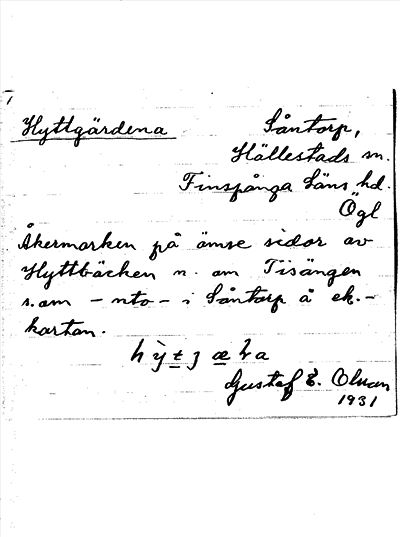 Hyttgärdena
Såntorp,
Hällestads sn.
Finspånga läns hd.
Ögl
Åkermarken på ömse sidor av
Hyttbäcken n. om Tisängen
s.om - nto - i Såntorp å ek.-
kartan.
Gustaf E.
1931